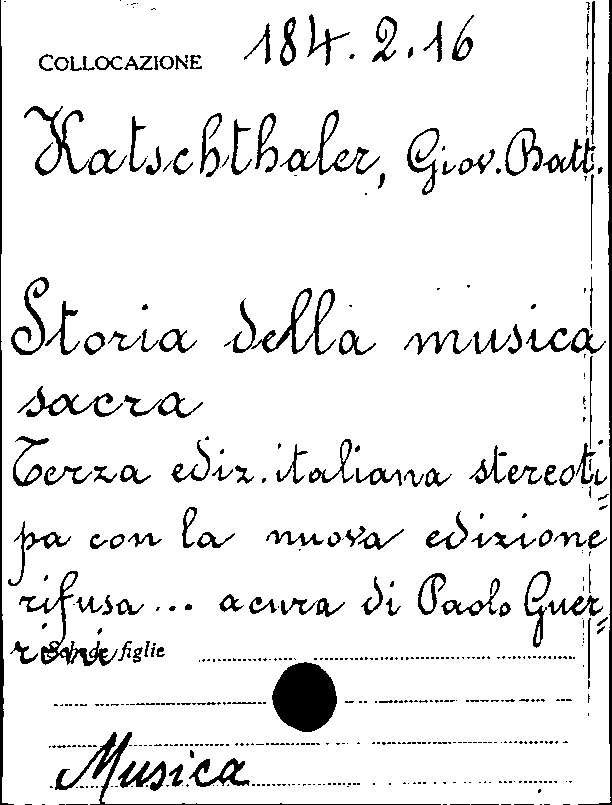 COLLOCAZIONE 184.2.16
Katschthaler, Giov. Batt.
Storia della musica
sacra
Terza ediz. italiana stereoti
pa con la nuova edizione
rifusa... a cura di Paolo Guer=
rini
Schede figlie
Musica